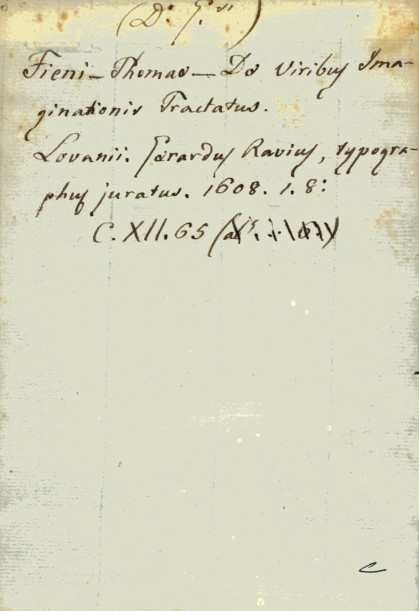 Fieni — Thomas — De Viribus Ima-
ginationis Tractatus.
Lovanii. Gerardus Rivius, typogra-
phus juratus. 1608. 1. 8:
C. XII. 65